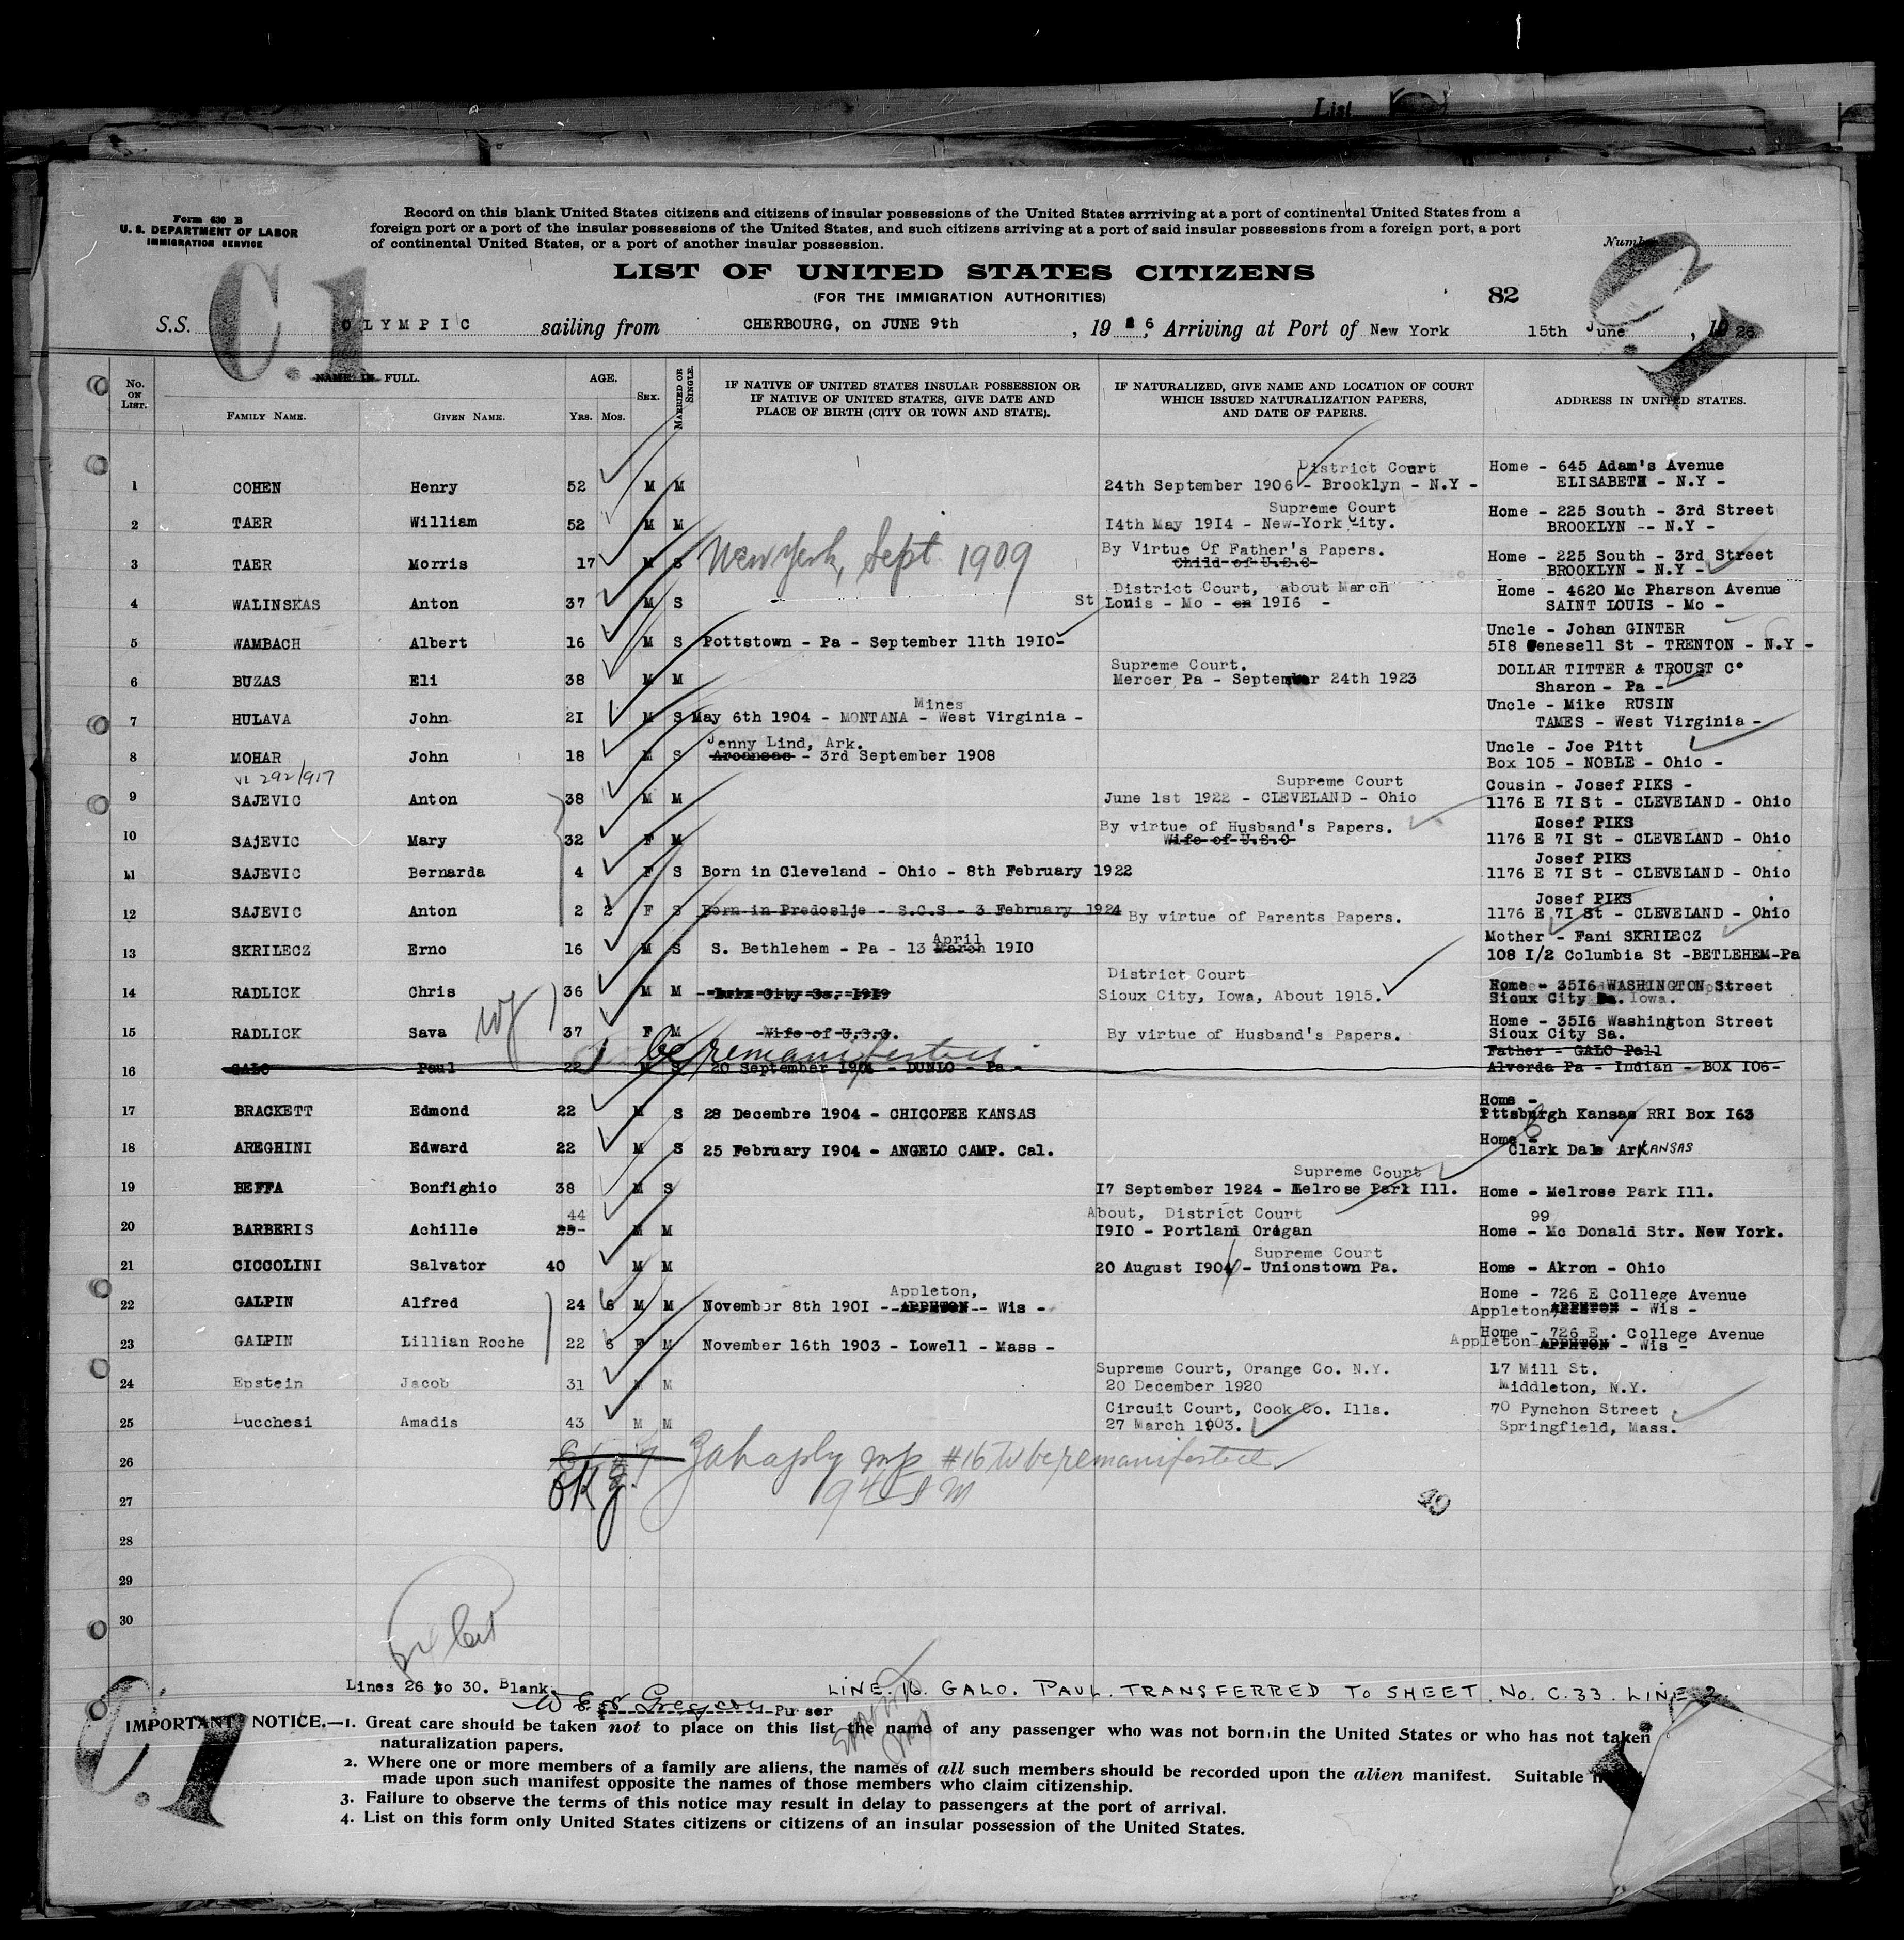 List
Form 630 B
U. S. DEPARTMENT OF LABOR
IMMIGRATION SERVICE
Record on this blank United States citizens and citizens of insular possessions of the United States arrriving at a port of continental United States from a
foreign port or a port of the insular possessions of the United States, and such citizens arriving at a port of said insular possessions from a foreign port, a port
of continental United States, or a port of another insular possession.
Number
C.1
C.1
LIST OF UNITED STATES CITIZENS
(FOR THE IMMIGRATION AUTHORITIES)
82
S.S. OLYMPIC sailing from CHERBOURG, on JUNE 9th, 1926, Arriving at Port of New York 15th June, 1926
No. ON LIST.
NAME IN FULL.
FAMILY NAME. GIVEN NAME.
AGE.
Yrs. Mos.
SEX.
MARRIED OR SINGLE.
IF NATIVE OF UNITED STATES INSULAR POSSESSION OR
IF NATIVE OF UNITED STATES, GIVE DATE AND
PLACE OF BIRTH (CITY OR TOWN AND STATE).
IF NATURALIZED, GIVE NAME AND LOCATION OF COURT
WHICH ISSUED NATURALIZATION PAPERS,
AND DATE OF PAPERS.
ADDRESS IN UNITED STATES.
District Court Home - 645 Adam's Avenue
1 COHEN Henry 52 M M 24th September 1906 - Brooklyn - N.Y - ELISABETH - N.Y -
Supreme Court Home - 225 South - 3rd Street
2 TAER William 52 M M 14th May 1914 - New-York City. BROOKLYN -- N.Y -
By Virtue Of Father's Papers. Home - 225 South - 3rd Street
3 TAER Morris 17 M S New York, Sept 1909 Child of U.S.C BROOKLYN - N.Y -
District Court, about March Home - 4620 Mc Pharson Avenue
4 WALINSKAS Anton 37 M S St Louis - Mo - on 1916 - SAINT LOUIS - Mo -
Uncle - Johan GINTER
5 WAMBACH Albert 16 M S Pottstown - Pa - September 11th 1910- 518 Genesell St - TRENTON - N.Y -
Supreme Court. DOLLAR TITTER & TROUST C°
6 BUZAS Eli 38 M M Mercer Pa - September 24th 1923 Sharon - Pa -
Mines Uncle - Mike RUSIN
7 HULAVA John 21 M S May 6th 1904 - MONTANA - West Virginia - TAMES - West Virginia -
Jenny Lind, Ark. Uncle - Joe Pitt
8 MOHAR John 18 M S Arcansas - 3rd September 1908 Box 105 - NOBLE - Ohio -
VL 292/917
Supreme Court Cousin - Josef PIKS -
9 SAJEVIC Anton 38 M M June 1st 1922 - CLEVELAND - Ohio 1176 E 71 St - CLEVELAND - Ohio
By virtue of Husband's Papers. Josef PIKS
10 SAJEVIC Mary 32 F M Wife of U.S.C 1176 E 71 St - CLEVELAND - Ohio
Josef PIKS
11 SAJEVIC Bernarda 4 F S Born in Cleveland - Ohio - 8th February 1922 1176 E 71 St - CLEVELAND - Ohio
Josef PIKS
12 SAJEVIC Anton 2 2 F S Born in Predoslje - S.C.S - 3 February 1924 By virtue of Parents Papers. 1176 E 71 St - CLEVELAND - Ohio
April Mother - Fani SKRILECZ
13 SKRILECZ Erno 16 M S S. Bethlehem - Pa - 13 March 1910 108 1/2 Columbia St -BETLEHEM-Pa
District Court Home - 3516 WASHINGTON Street
14 RADLICK Chris 36 M M City Sa. 1919 Sioux City, Iowa, About 1915. Sioux City Sa. Iowa.
Home - 3516 Washington Street
15 RADLICK Sava 37 F M Wife of U.S.C. By virtue of Husband's Papers. Sioux City Sa.
be remanifested Father - GALO Pall
16 GALO Paul 22 M S 20 September 1904 - DUNLO - Pa - Alverda Pa - Indian - BOX 106-
Home -
17 BRACKETT Edmond 22 M S 28 Decembre 1904 - CHICOPEE KANSAS Pttsburgh Kansas RRI Box 163
Home -
18 AREGHINI Edward 22 M S 25 February 1904 - ANGELO CAMP. Cal. Clark Dale ArKANSAS
Supreme Court
19 BEFFA Bonfighio 38 M S 17 September 1924 - Melrose Park Ill. Home - Melrose Park Ill.
44 About, District Court 99
20 BARBERIS Achille 25- M M 1910 - Portland Orégan Home - Mc Donald Str. New York.
Supreme Court
21 CICCOLINI Salvator 40 M M 20 August 1904 - Unionstown Pa. Home - Akron - Ohio
Appleton, Home - 726 E College Avenue
22 GALPIN Alfred 24 6 M M November 8th 1901 - APPHTON - Wis - Appleton APPHTON - Wis -
Home - 726 E . College Avenue
23 GALPIN Lillian Roche 22 6 F M November 16th 1903 - Lowell - Mass - Appleton APPHTON - Wis -
Supreme Court, Orange Co. N.Y. 17 Mill St.
24 Epstein Jacob 31 M M 20 December 1920 Middleton, N.Y.
Circuit Court, Cook Co. Ills. 70 Pynchon Street
25 Lucchesi Amadis 43 M M 27 March 1903. Springfield, Mass.
26 #16 to be remanifested
27 OK
49
28
29
30
Lines 26 to 30. Blank.
LINE. 16. GALO. PAUL. TRANSFERRED TO SHEET. NO. C.33. LINE 2.
W E Gregory Purser
IMPORTANT NOTICE.—1. Great care should be taken not to place on this list the name of any passenger who was not born in the United States or who has not taken
naturalization papers.
2. Where one or more members of a family are aliens, the names of all such members should be recorded upon the alien manifest. Suitable
made upon such manifest opposite the names of those members who claim citizenship.
3. Failure to observe the terms of this notice may result in delay to passengers at the port of arrival.
4. List on this form only United States citizens or citizens of an insular possession of the United States.
C.1